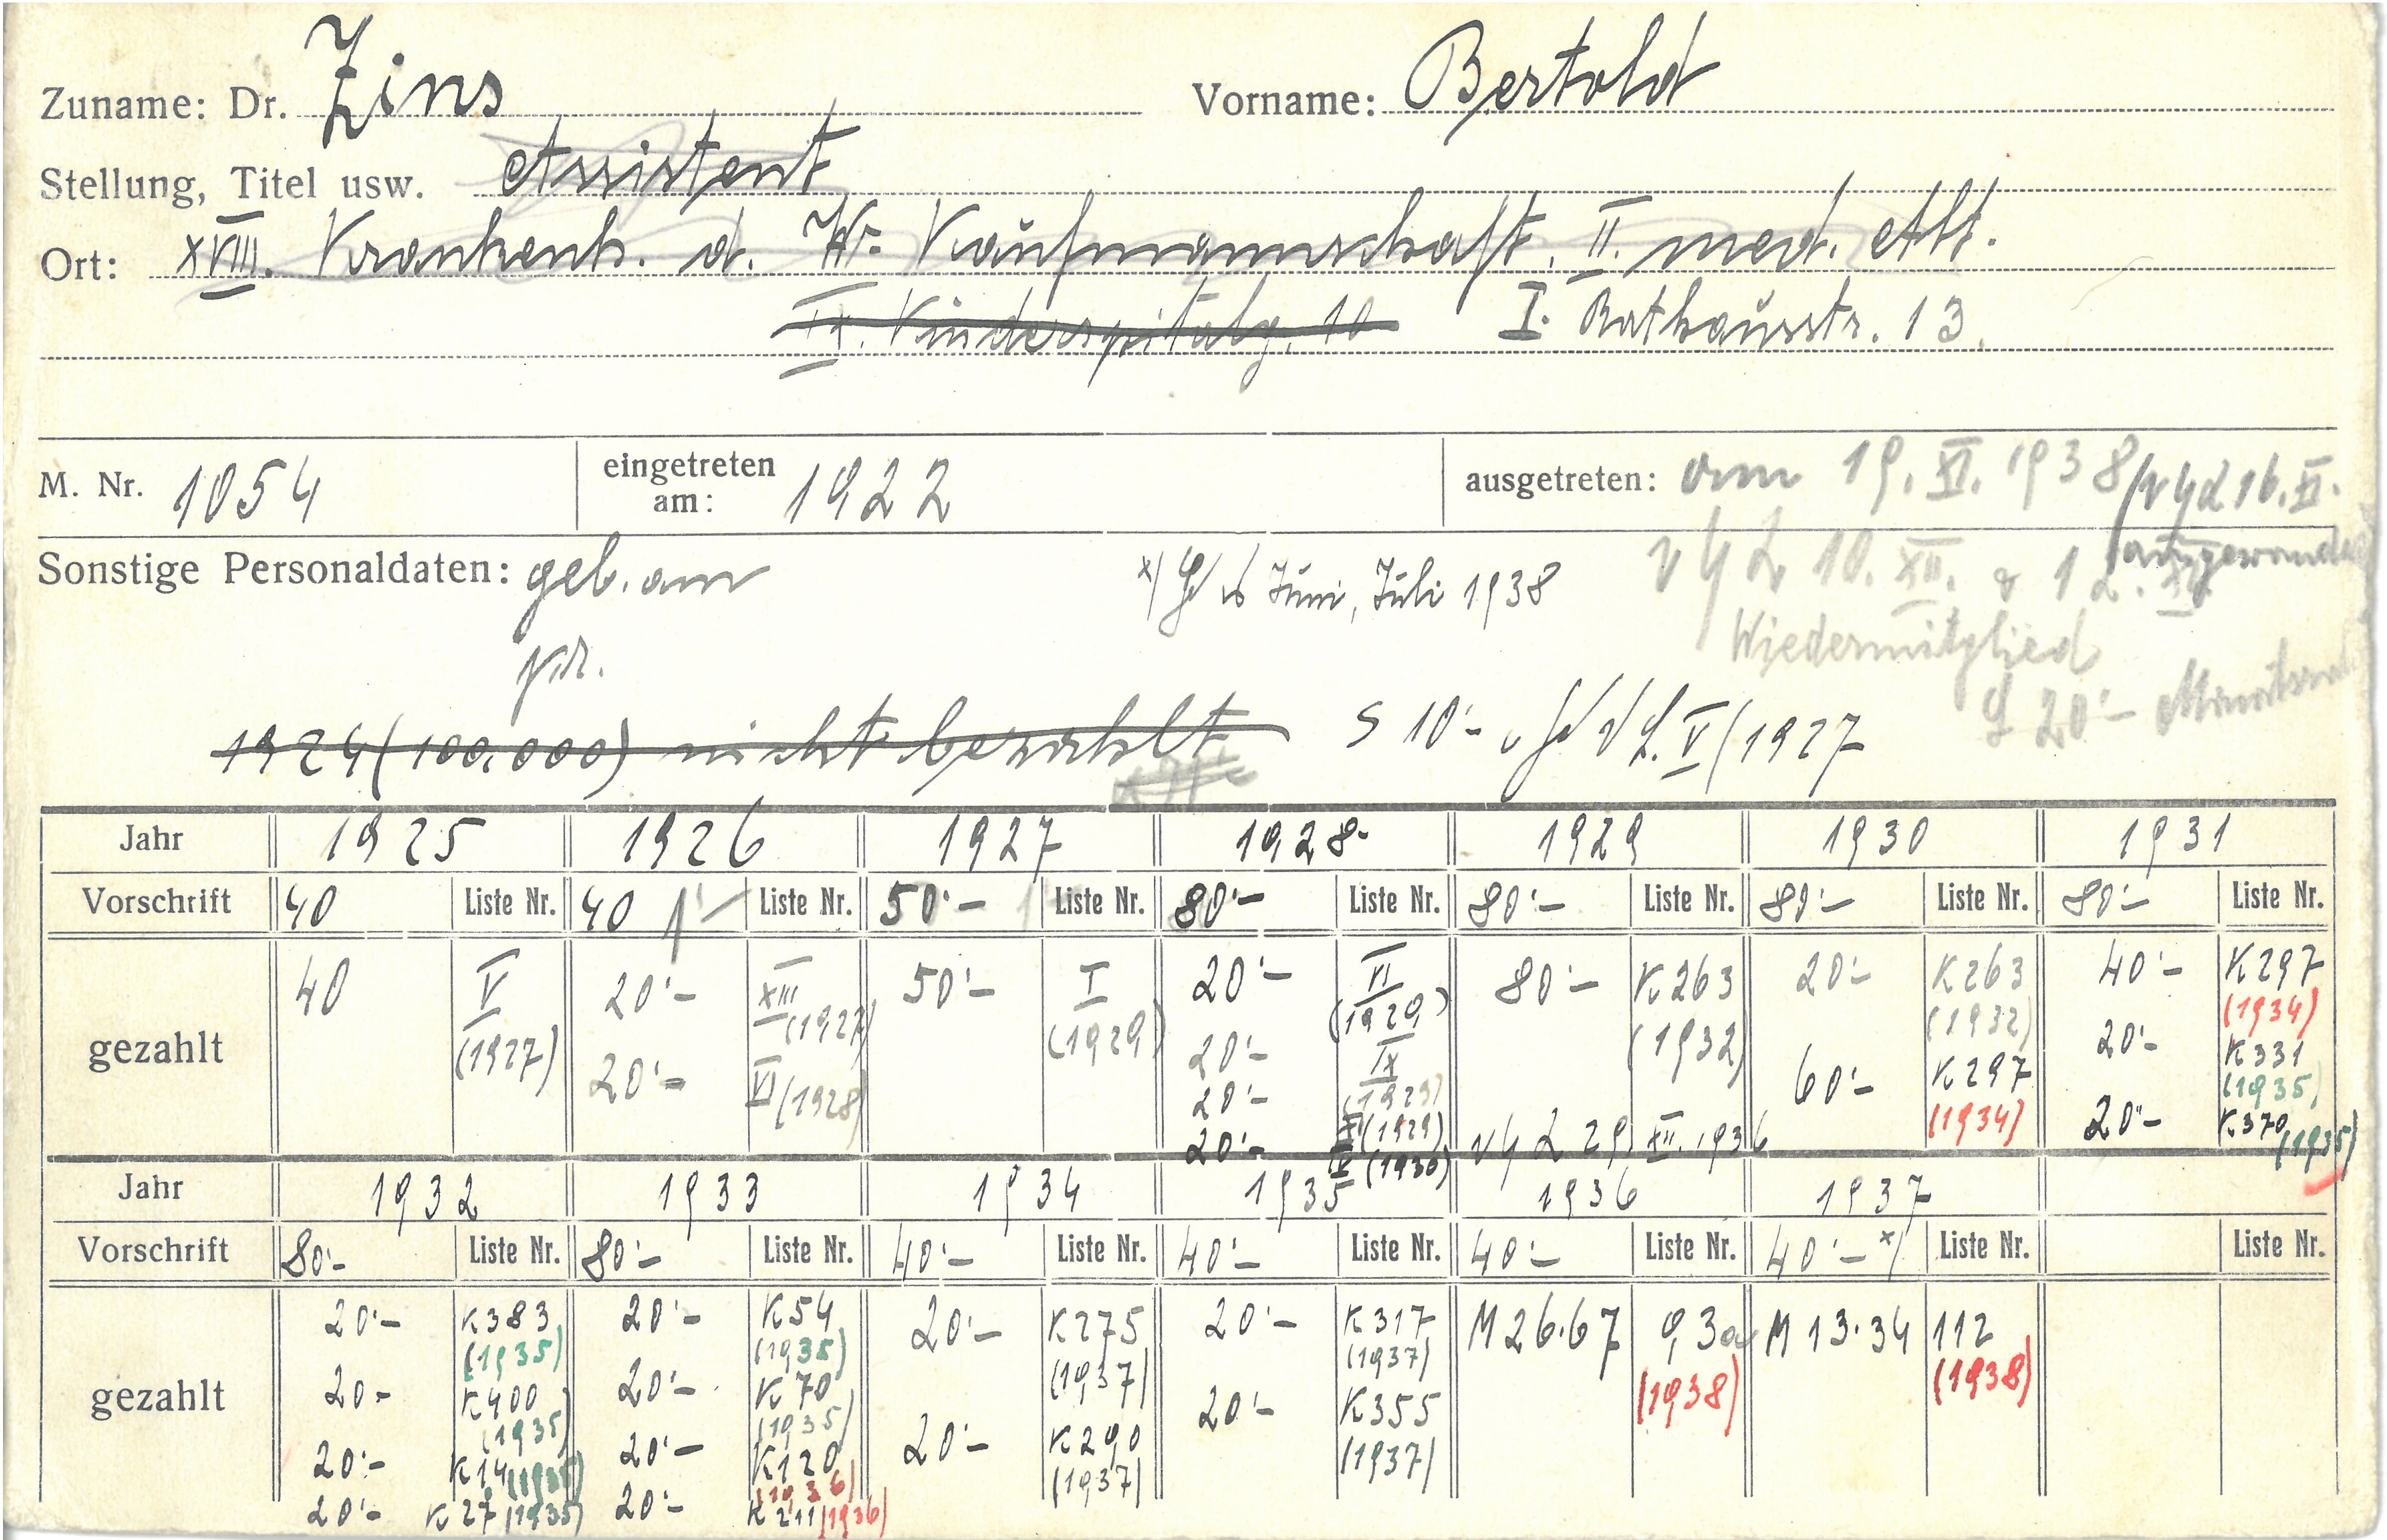 Zuname: Dr. Zins Vorname: Bertold
Stellung, Titel usw. Assistent
Ort: XVIII. Krankenh. d. Wr. Kaufmannschaft. II. med. Abt.
IX. Kinderspitalg. 10 I. Rathausstr. 13.
M. Nr. 1054 eingetreten am: 1922 ausgetreten: am 19. XI. 1938 16. XI.
ausgewandert
Sonstige Personaldaten: geb. am x) Juni, Juli 1938 10. XII.
Wiedermitglied
pr.
20'-
1924 (100.000) nicht bezahlt S 10'- V/1927
Jahr 1925 1926 1927 1928 1929 1930 1931
Vorschrift 40 Liste Nr. 40 Liste Nr. 50'- Liste Nr. 80'- Liste Nr. 80'- Liste Nr. 80'- Liste Nr. 80'- Liste Nr.
gezahlt 40 V 20'- XIII 50'- I 20'- VI 80'- K263 20'- K263 40'- K297
(1927) (1927) (1929) (1929) (1932) (1932) (1934)
20'- VI (1928) 20'- IX (1929) 60'- K297 20'- K331
(1934) (1935)
20'- (1929) 20'- K370 (1935)
20'- (1930) 29. XII. 1936
Jahr 1932 1933 1934 1935 1936 1937
Vorschrift 80'- Liste Nr. 80'- Liste Nr. 40'- Liste Nr. 40'- Liste Nr. 40'- Liste Nr. 40'- x) Liste Nr. Liste Nr.
gezahlt 20'- K383 20'- K54 20'- K275 20'- K317 M 26.67 93a M 13.34 112
(1935) (1935) (1937) (1937) (1938) (1938)
20- K400 20'- K70 20'- K290 20'- K355
(1935) (1935) (1937) (1937)
20'- K14 (1935) 20'- K120 (1936)
20'- K27 (1935) 20'- K211 (1936)